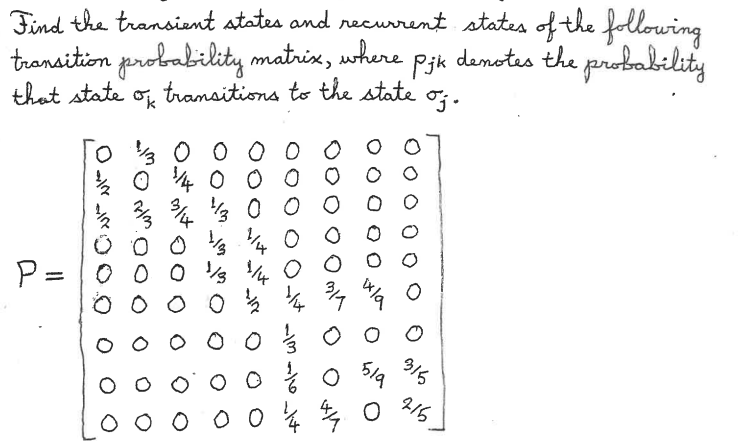 Find the transient states and recurrent states of the following
transition probability matrix, where pjk denotes the probability
that state σk transitions to the state σj.
0 1/3 0 0 0 0 0 0 0
1/2 0 1/4 0 0 0 0 0 0
1/2 2/3 3/4 1/3 0 0 0 0 0
0 0 0 1/3 1/4 0 0 0 0
P = 0 0 0 1/3 1/4 0 0 0 0
0 0 0 0 1/2 1/4 3/7 4/9 0
0 0 0 0 0 1/3 0 0 0
0 0 0 0 0 1/6 0 5/9 3/5
0 0 0 0 0 1/4 4/7 0 2/5